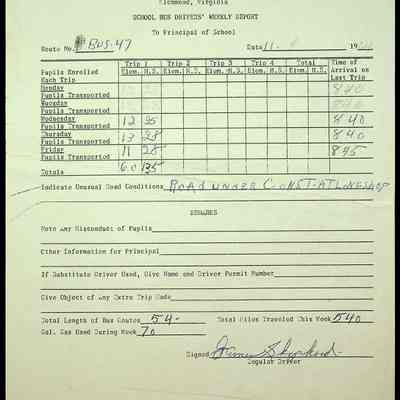 Richmond, Virginia
SCHOOL BUS DRIVERS' WEEKLY REPORT
To Principal of School
Route No. BUS-47 Date 11- 19
Trip 1 Trip 2 Trip 3 Trip 4 Total Time of
Pupils Enrolled Elem. H.S. Elem. H.S. Elem. H.S. Elem. H.S. Elem. H.S. Arrival on
Each Trip Last Trip
Monday
Pupils Transported 840
Tuesday
Pupils Transported 840
Wednesday
Pupils Transported 12 25 840
Thursday
Pupils Transported 13 28 840
Friday
Pupils Transported 11 28 845
Totals 60 135
Indicate Unusual Road Conditions ROAD UNDER CONST-AT LONESHOP
REMARKS
Note Any Misconduct of Pupils
Other Information for Principal
If Substitute Driver Used, Give Name and Driver Permit Number
Give Object of Any Extra Trip Made
Total Length of Bus Routes 54- Total Miles Traveled This Week 540
Gal. Gas Used During Week 70
Signed James Shepherd
Regular Driver